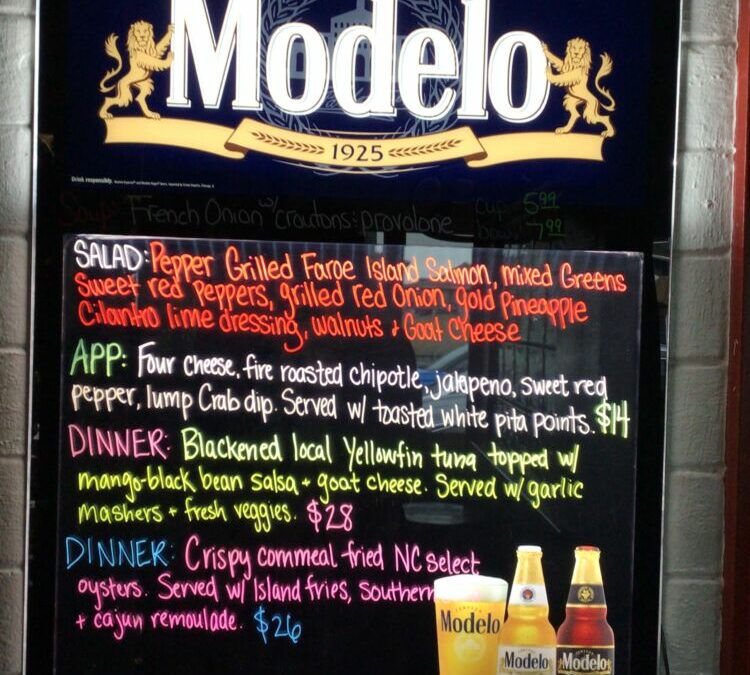 Modelo
1925
Drink responsibly.
Soup: French Onion w/ croutons: provolone cup 5.99
bowl 7.99
SALAD: Pepper Grilled Faroe Island Salmon, mixed Greens
Sweet red Peppers, grilled red Onion, gold Pineapple
Cilantro lime dressing, walnuts + Goat Cheese
APP: Four Cheese, fire roasted chipotle, jalapeno, sweet red
pepper, lump Crab dip. Served w/ toasted white pita points. $14
DINNER: Blackened local Yellowfin tuna topped w/
mango-black bean salsa + goat cheese. Served w/ garlic
mashers + fresh veggies. $28
DINNER: Crispy cornmeal fried NC select
oysters. Served w/ Island fries, Southern
+ cajun remoulade. $26
Modelo
Modelo
Modelo